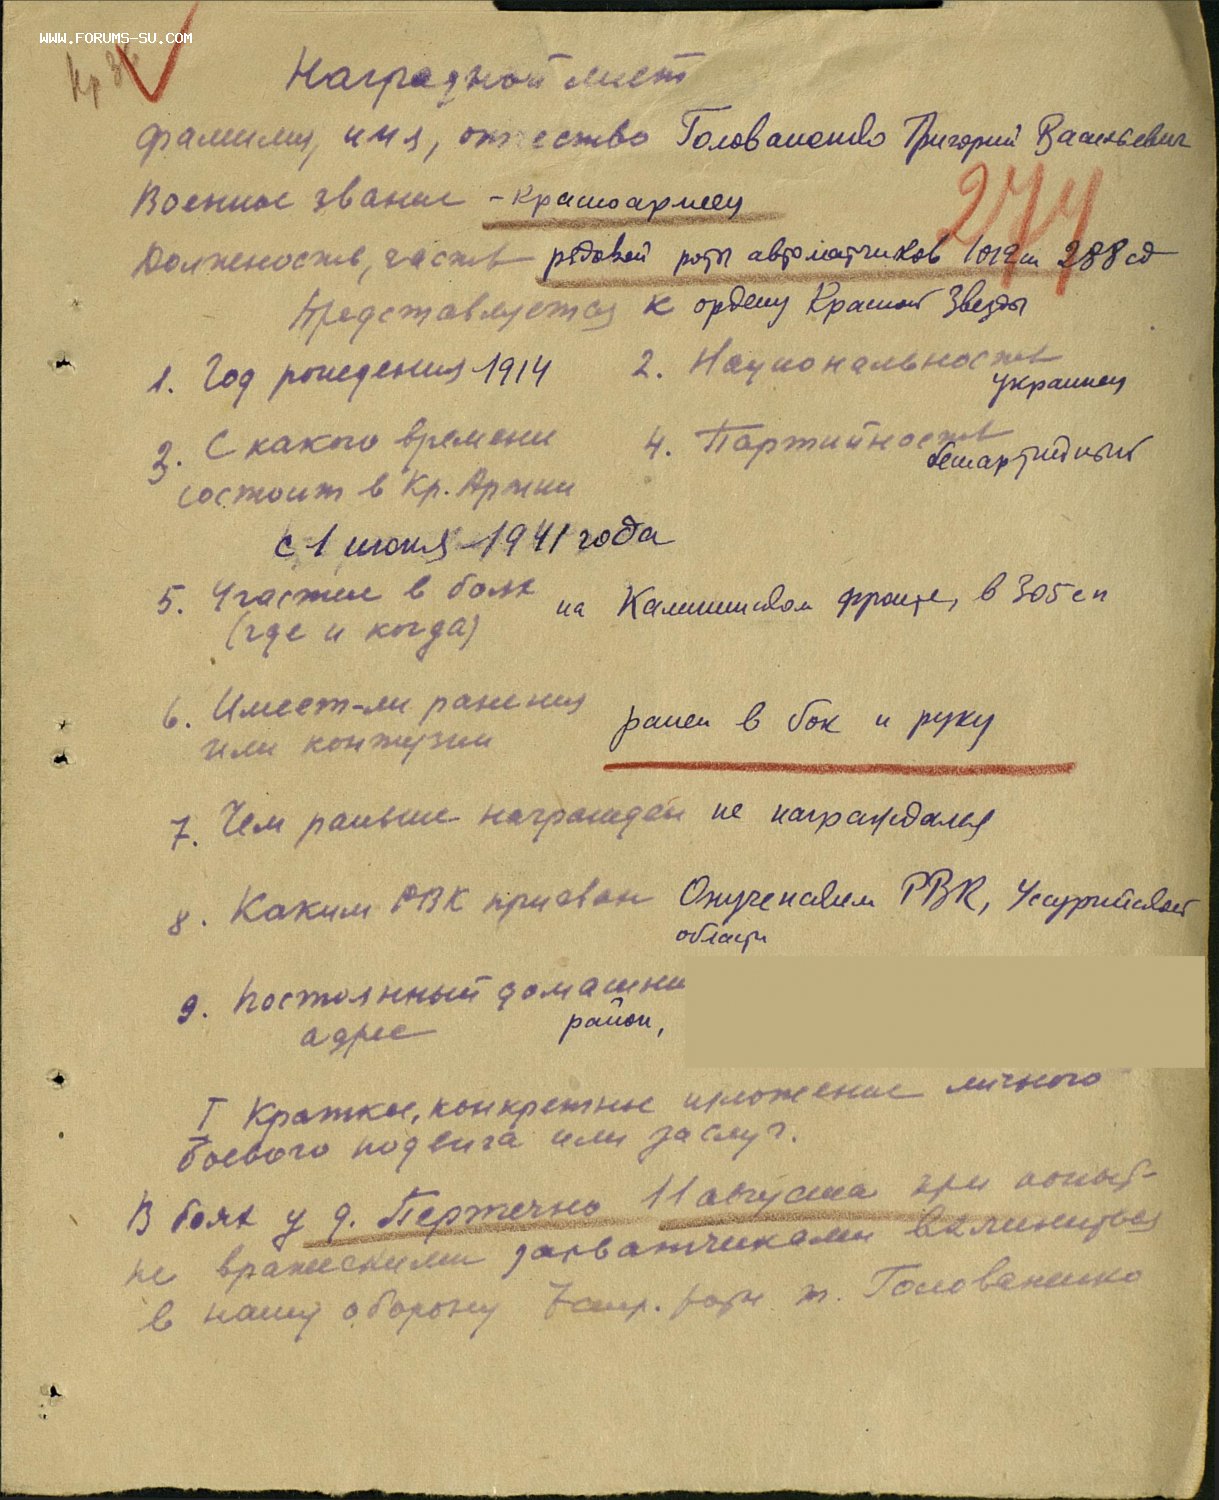 WWW.FORUMS-SU.COM
Кр Зв
Наградной лист
фамилия, имя, отчество Голованенко Григорий Васильевич
Военное звание - красноармеец
277
Должность, часть рядовой роты автоматчиков 1012 сп 288 сд
Представляется к ордену Красной Звезды
1. Год рождения 1914
2. Национальность
украинец
3. С какого времени
состоит в Кр. Армии
4. Партийность
беспартийный
с 1 июня 1941 года
5. Участие в боях
(где и когда)
на Калининском фронте, в 305 сп
6. Имеет-ли ранения
или контузии
ранен в бок и руку
7. Чем раньше награжден не награждался
8. Каким РВК призван РВК, Усурийской
области
9. Постоянный домашни
адрес район,
I Краткое, конкретное изложение личного
боевого подвига или заслуг.
В боях у д. 11 августа при попыт-
ке вражескими захватчиками вклиниться
в нашу оборону 7 стр. роты т. Голованенко